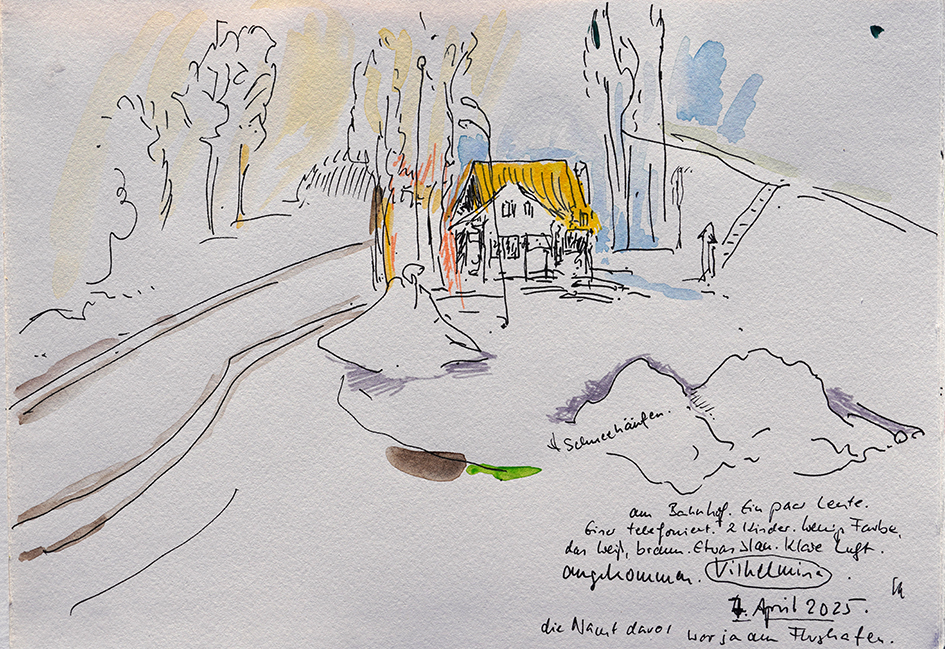 ↓ Schneehäufen.
am Bahnhof. Ein paar Leute.
Einer telefoniert. 2 Kinder. Wenig Farbe,
das Weiß, braun. Etwas blau. Klare Luft.
angekommen. Vilhelmina.
1. April 2025.
die Nacht davor war ja am Flughafen.